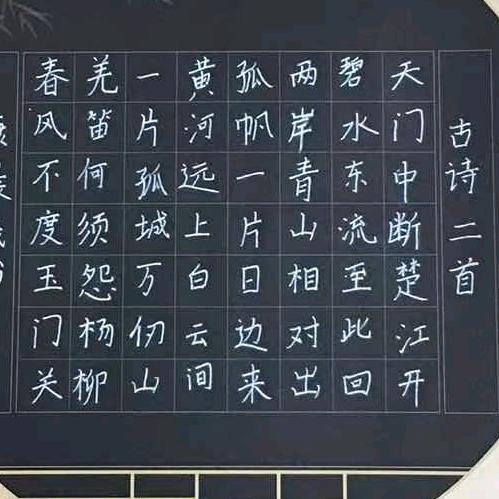 古诗二首
天门中断楚江开
碧水东流至此回
两岸青山相对出
孤帆一片日边来
黄河远上白云间
一片孤城万仞山
羌笛何须怨杨柳
春风不度玉门关